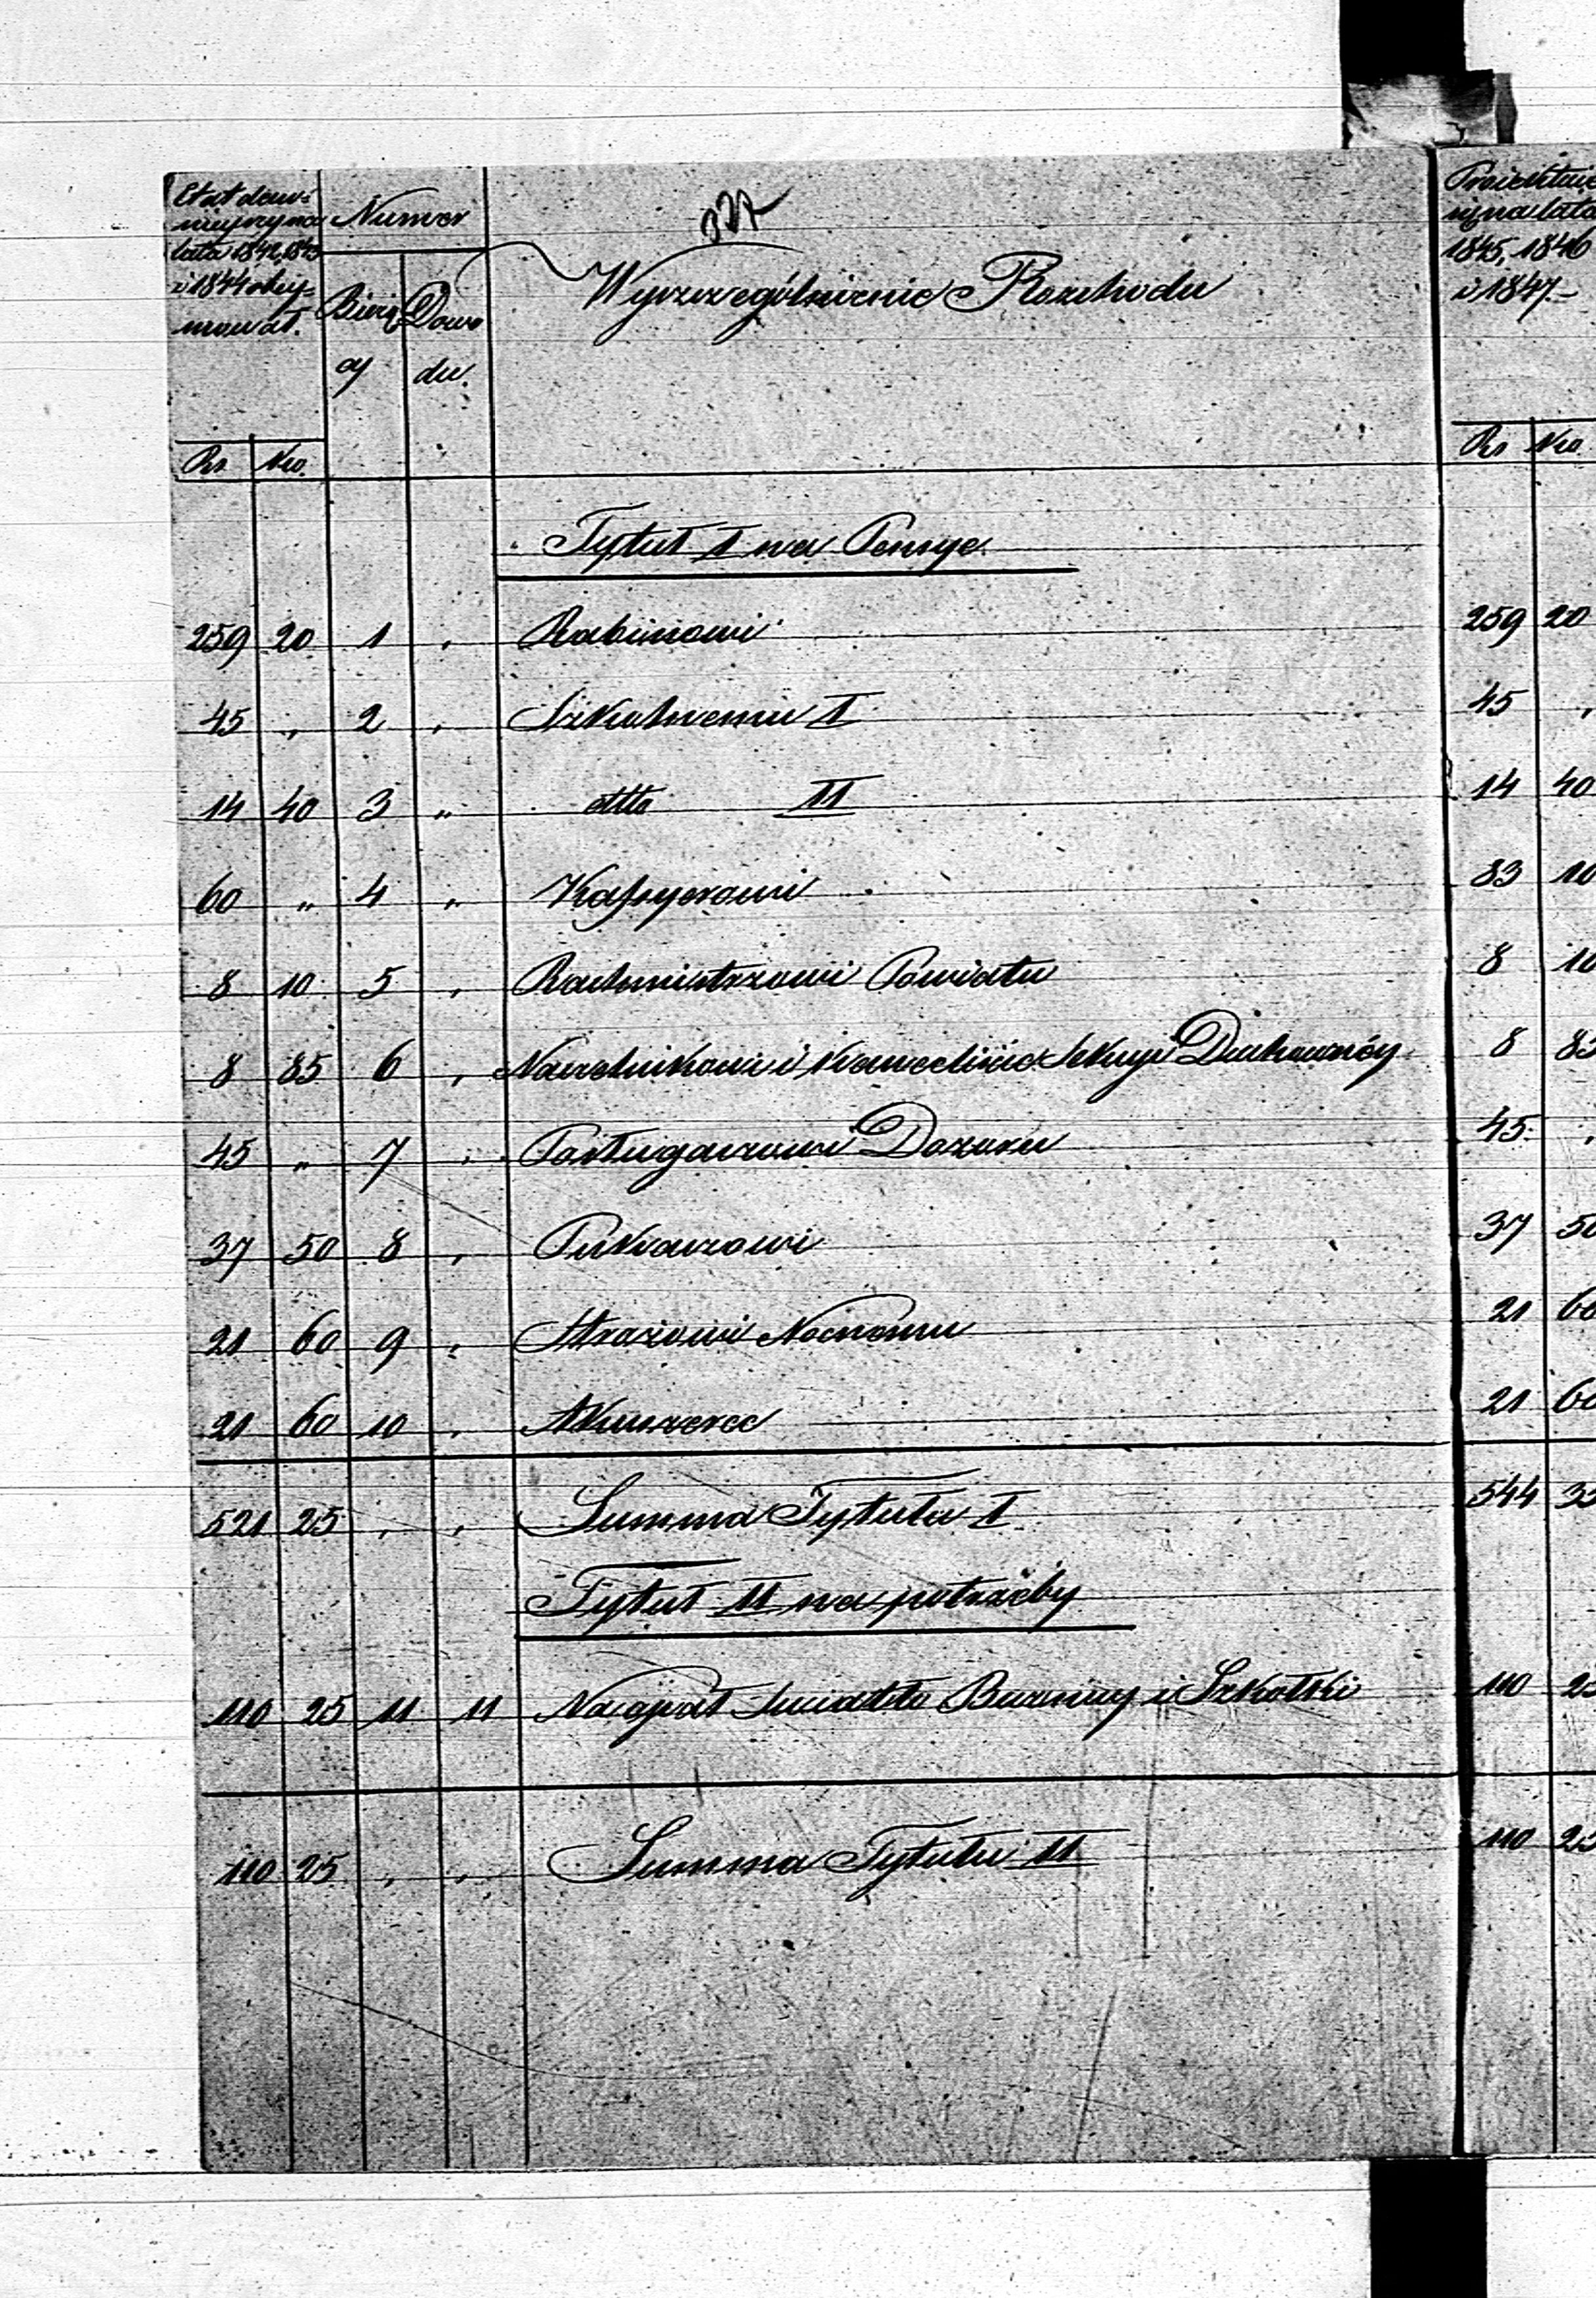 327
Etat daw-
niejszy na
lata 1842, 1843
i 1844 obey-
mował.
Numer
Bieżą
cy
Dowo
du.
Wyszczególnienie Rozchodu
Proiektuie
się na lata
1845, 1846
i 1847.
Rs Ko. Rs Ko.
Tytuł I na Pensye
259 20 1 " Rabinowi 259 20
45 " 2 " Szkolnemu I 45 "
14 40 3 " dtto II 14 40
60 " 4 " Kassyerowi 83 10
8 10 5 " Rachmistrzowi Powiatu 8 10
8 85 6 " Naczelnikowi i Kancelixie Sekcyi Duchownéy 8 85
45 " 7 " Posługaczowi Dozoru 45 "
37 50 8 " Pukaczowi 37 50
21 60 9 " Strażowi Nocnemu 21 60
21 60 10 " Akuszerce 21 60
521 25 " " Summa Tytułu I 544 35
Tytuł II na potrzeby
110 25 11 11 Na opał Swiatło Buznicy i Szkołki 110 25
110 25 " " Summa Tytułu II 110 25